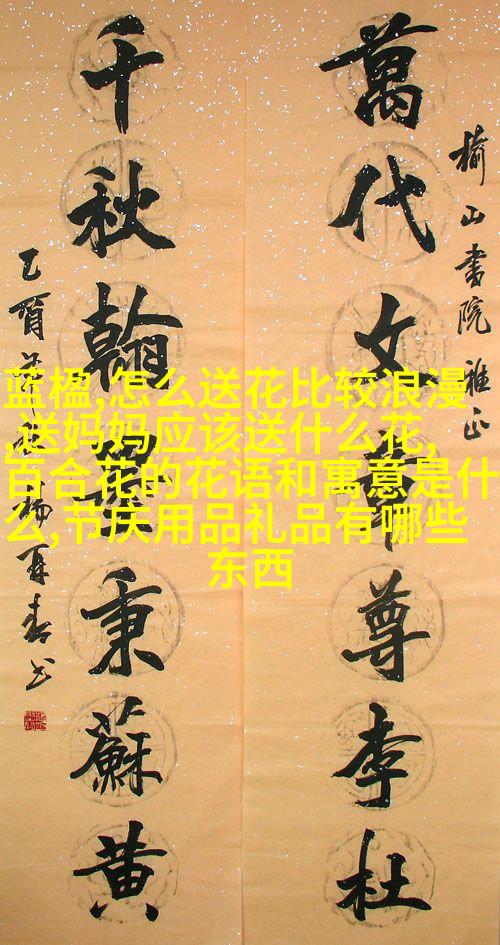 榆山書院雅正
萬代文章尊李杜
千秋翰墨秉蘇黄
乙酉 楊再春书
蓝楹,怎么送花比较浪漫
,送妈妈应该送什么花,
百合花的花语和寓意是什
么,节庆用品礼品有哪些
东西